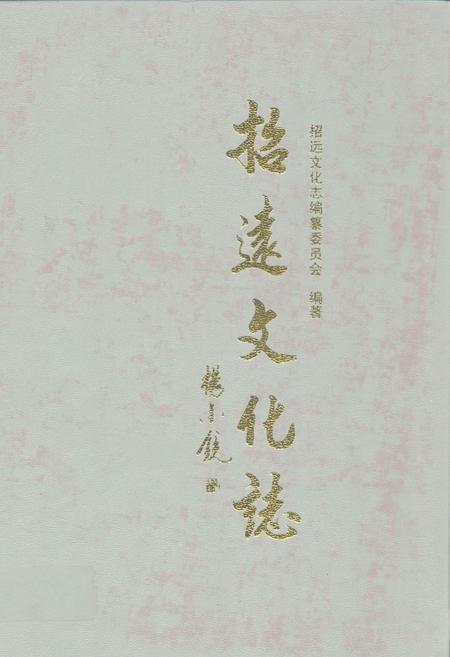 招远文化志编纂委员会 编著
招遠文化誌